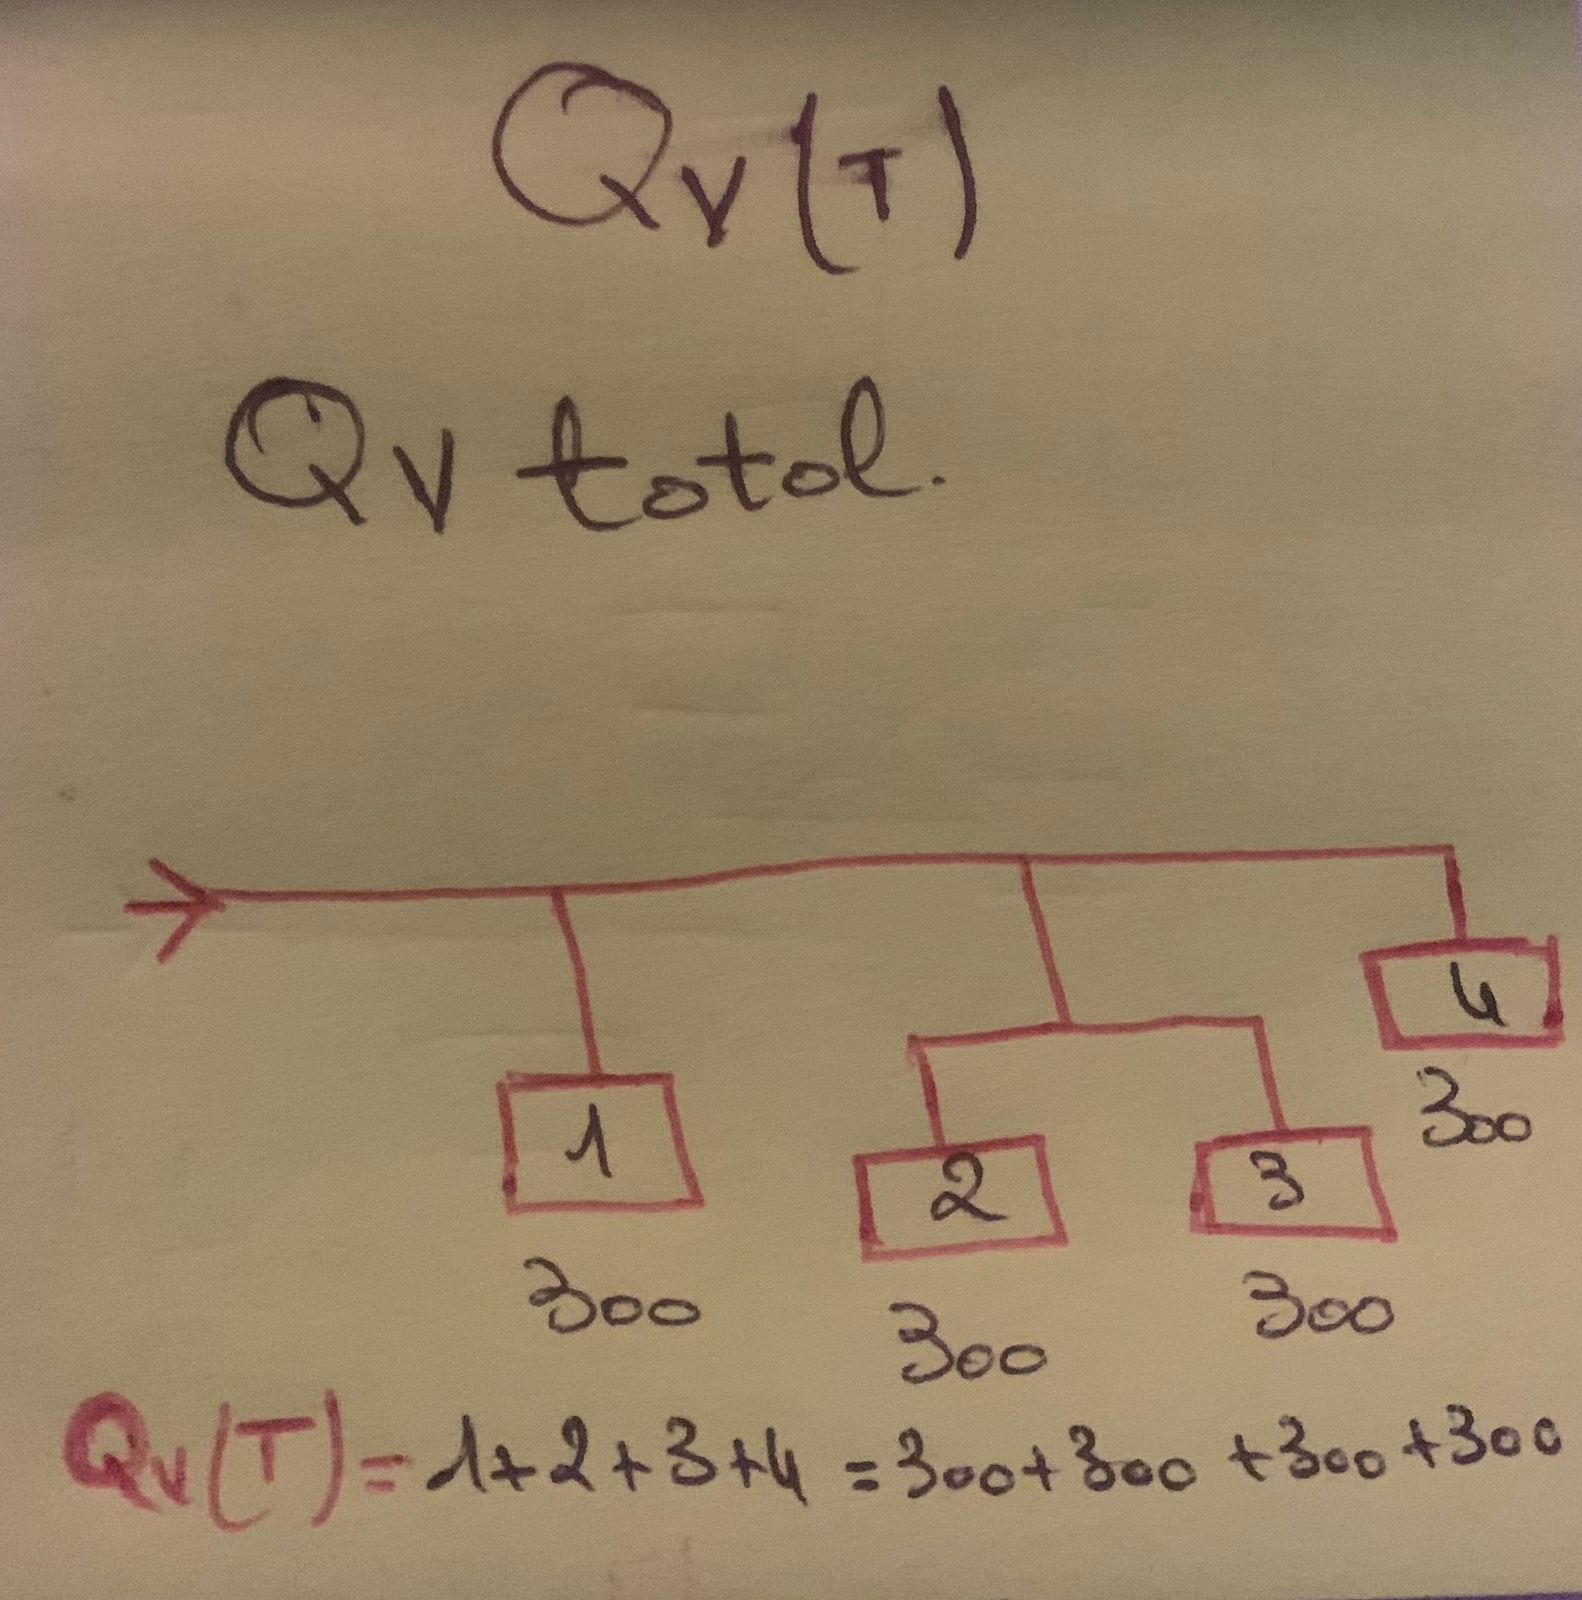 Qv(T)
Qv total.
4
300
1
2
3
300
300
300
Qv(T) = 1+2+3+4 = 300+300+300+300